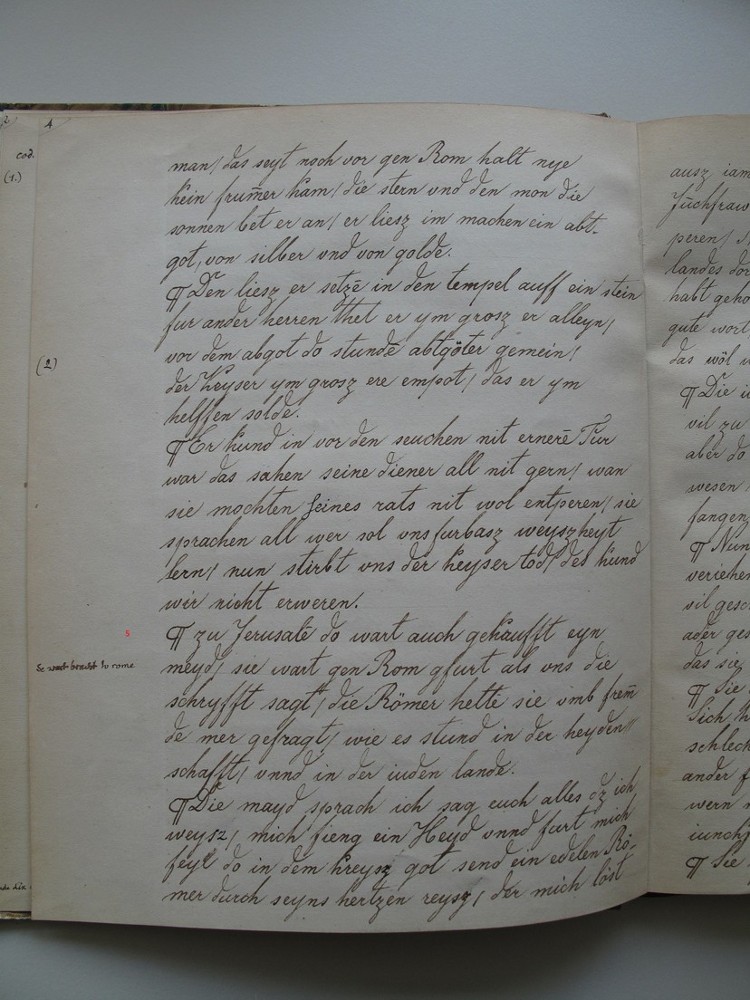 4
cod.
(1.)
man/ das seyt noch vor gen Rom halt nye
kein frum̄er kam/ die stern vnd den mon die
sonnen bet er an/ er liesz im machen ein abt-
got, von silber vnd von golde.
¶ Den liesz er setzē in den tempel auff ein stein
fur ander herren thet er ym grosz er alleyn/
(2)
vor dem abgot do stundē abtgöter gemein/
der Keyser ym grosz ere empot/ das er ym
helffen solde.
¶ Er kund in vor den seuchen nit ernerē Tur
war das sahen seine diener all nit gern/ wan
sie mochten seines rats nit wol entperen/ sie
sprachen all wer sol vns furbasz weyszheyt
lern/ nun stirbt vns der Keyser tod/ des kund
wir nicht erweren.
¶ zu Jerusalē do wart auch gekaufft eyn
meyd/ sie wart gen Rom gfurt als vns die
schryfft sagt/ die Römer hette sie vmb frem̄
de mer gefragt/ wie es stund in der heyden
schafft/ vnnd in der iuden lande.
¶ Die mayd sprach ich sag euch alles dz ich
weysz/ mich fieng ein Heyd vnnd furt mich
feyl do in dem kreysz got send ein edelen Rö-
mer durch seyns hertzen reysz/ der mich löst
s
to rome
ausz iam
Juchfraw
peren/
landes dor
habt geho
gute wort
das wöl
¶ Die
vil zu
aber do
wesen
fangen
¶ Nun
veriehen
vil gesc
ader ges
das sie
¶ Sie
Sich
schlech
ander f
wern
iunckf
¶ Sie